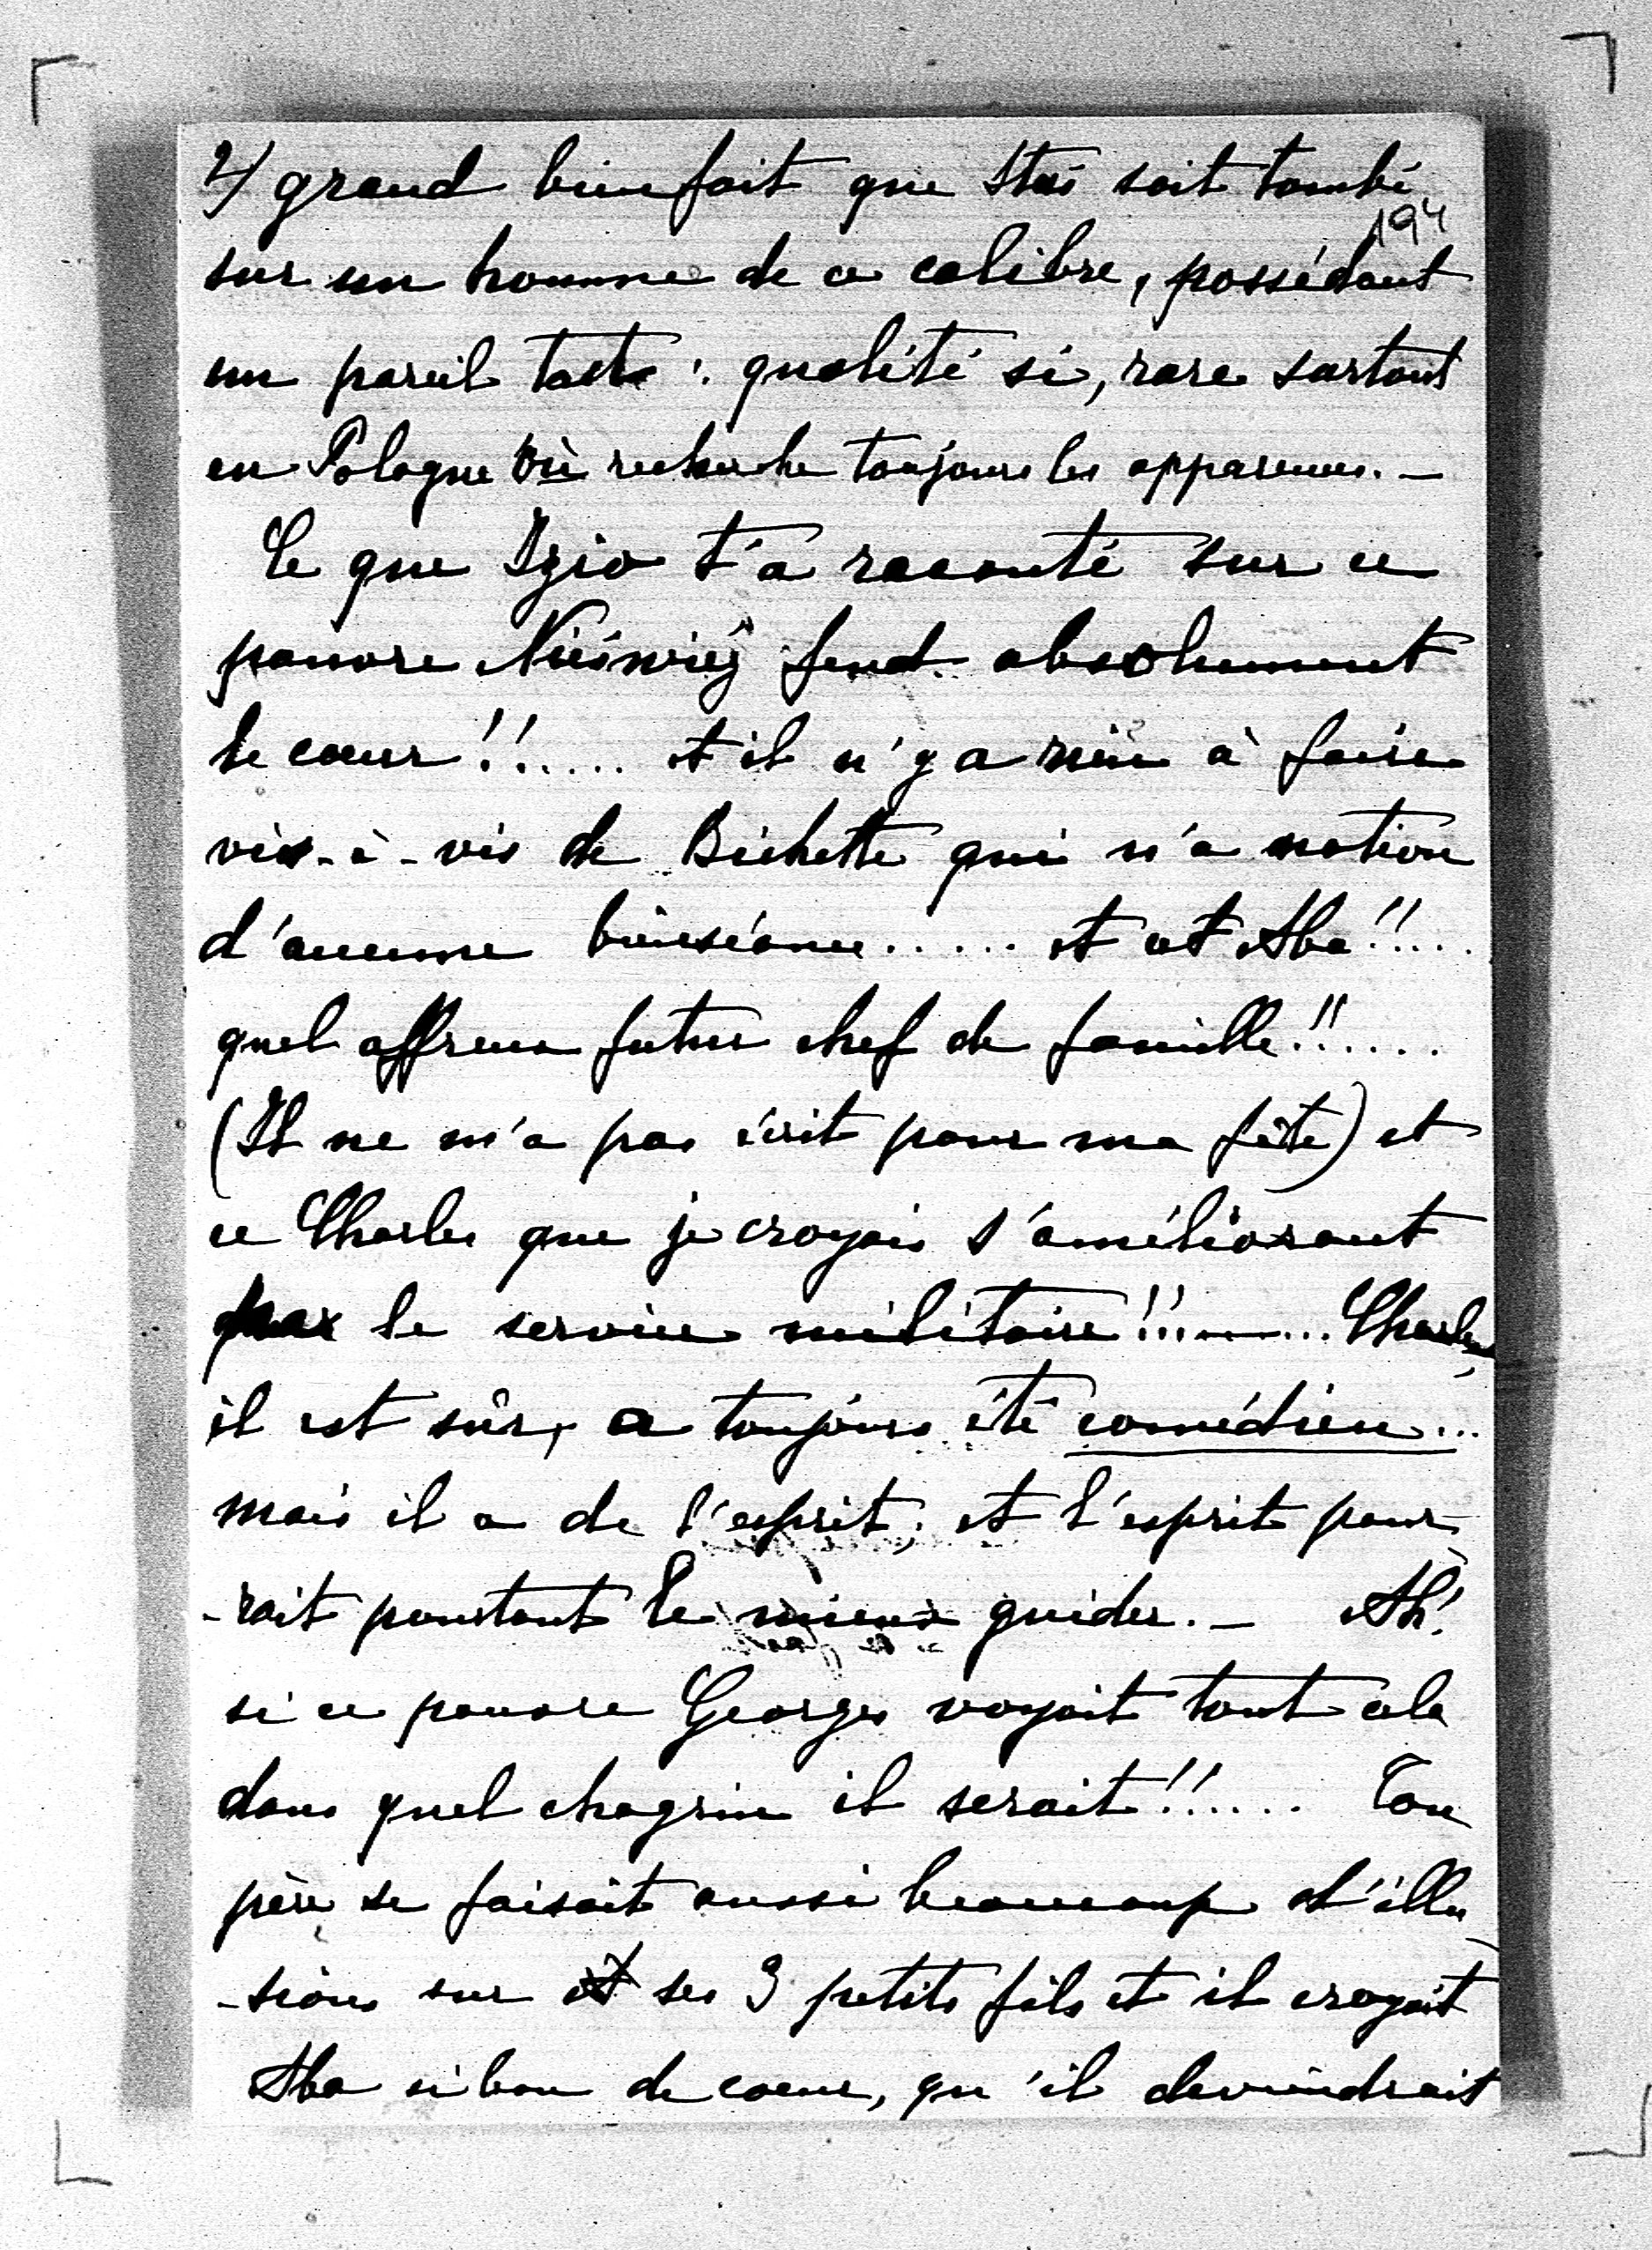 2/ grand bienfait que Staś soit tombé
194
sur un homme de ce calibre, possédant
un pareil tact : qualité si, rare surtout
en Pologne où recherche toujours les apparences. —
Ce que Izio t'a raconté sur ce
pauvre Nieśwież fend absolument
le cœur !!..... et il n'y a rien à faire
vis-à-vis de Bichette qui n'a notion
d'aucune bienséance..... et cet Aba !!....
quel affreux futur chef de famille !!......
(Il ne m'a pas écrit pour ma fête) et
ce Charles que je croyais s'améliorant
par le service militaire !!......... Charles,
il est sûr, a toujours été comédien...
mais il a de l'esprit, et l'esprit pour-
-rait pourtant le mieux guider. — Ah!
si ce pauvre Georges voyait tout cela
dans quel chagrin il serait !!...... Ton
père se faisait aussi beaucoup d'illu-
-sions sur ses 3 petits fils et il croyait
Aba si bon de cœur, qu'il deviendrait